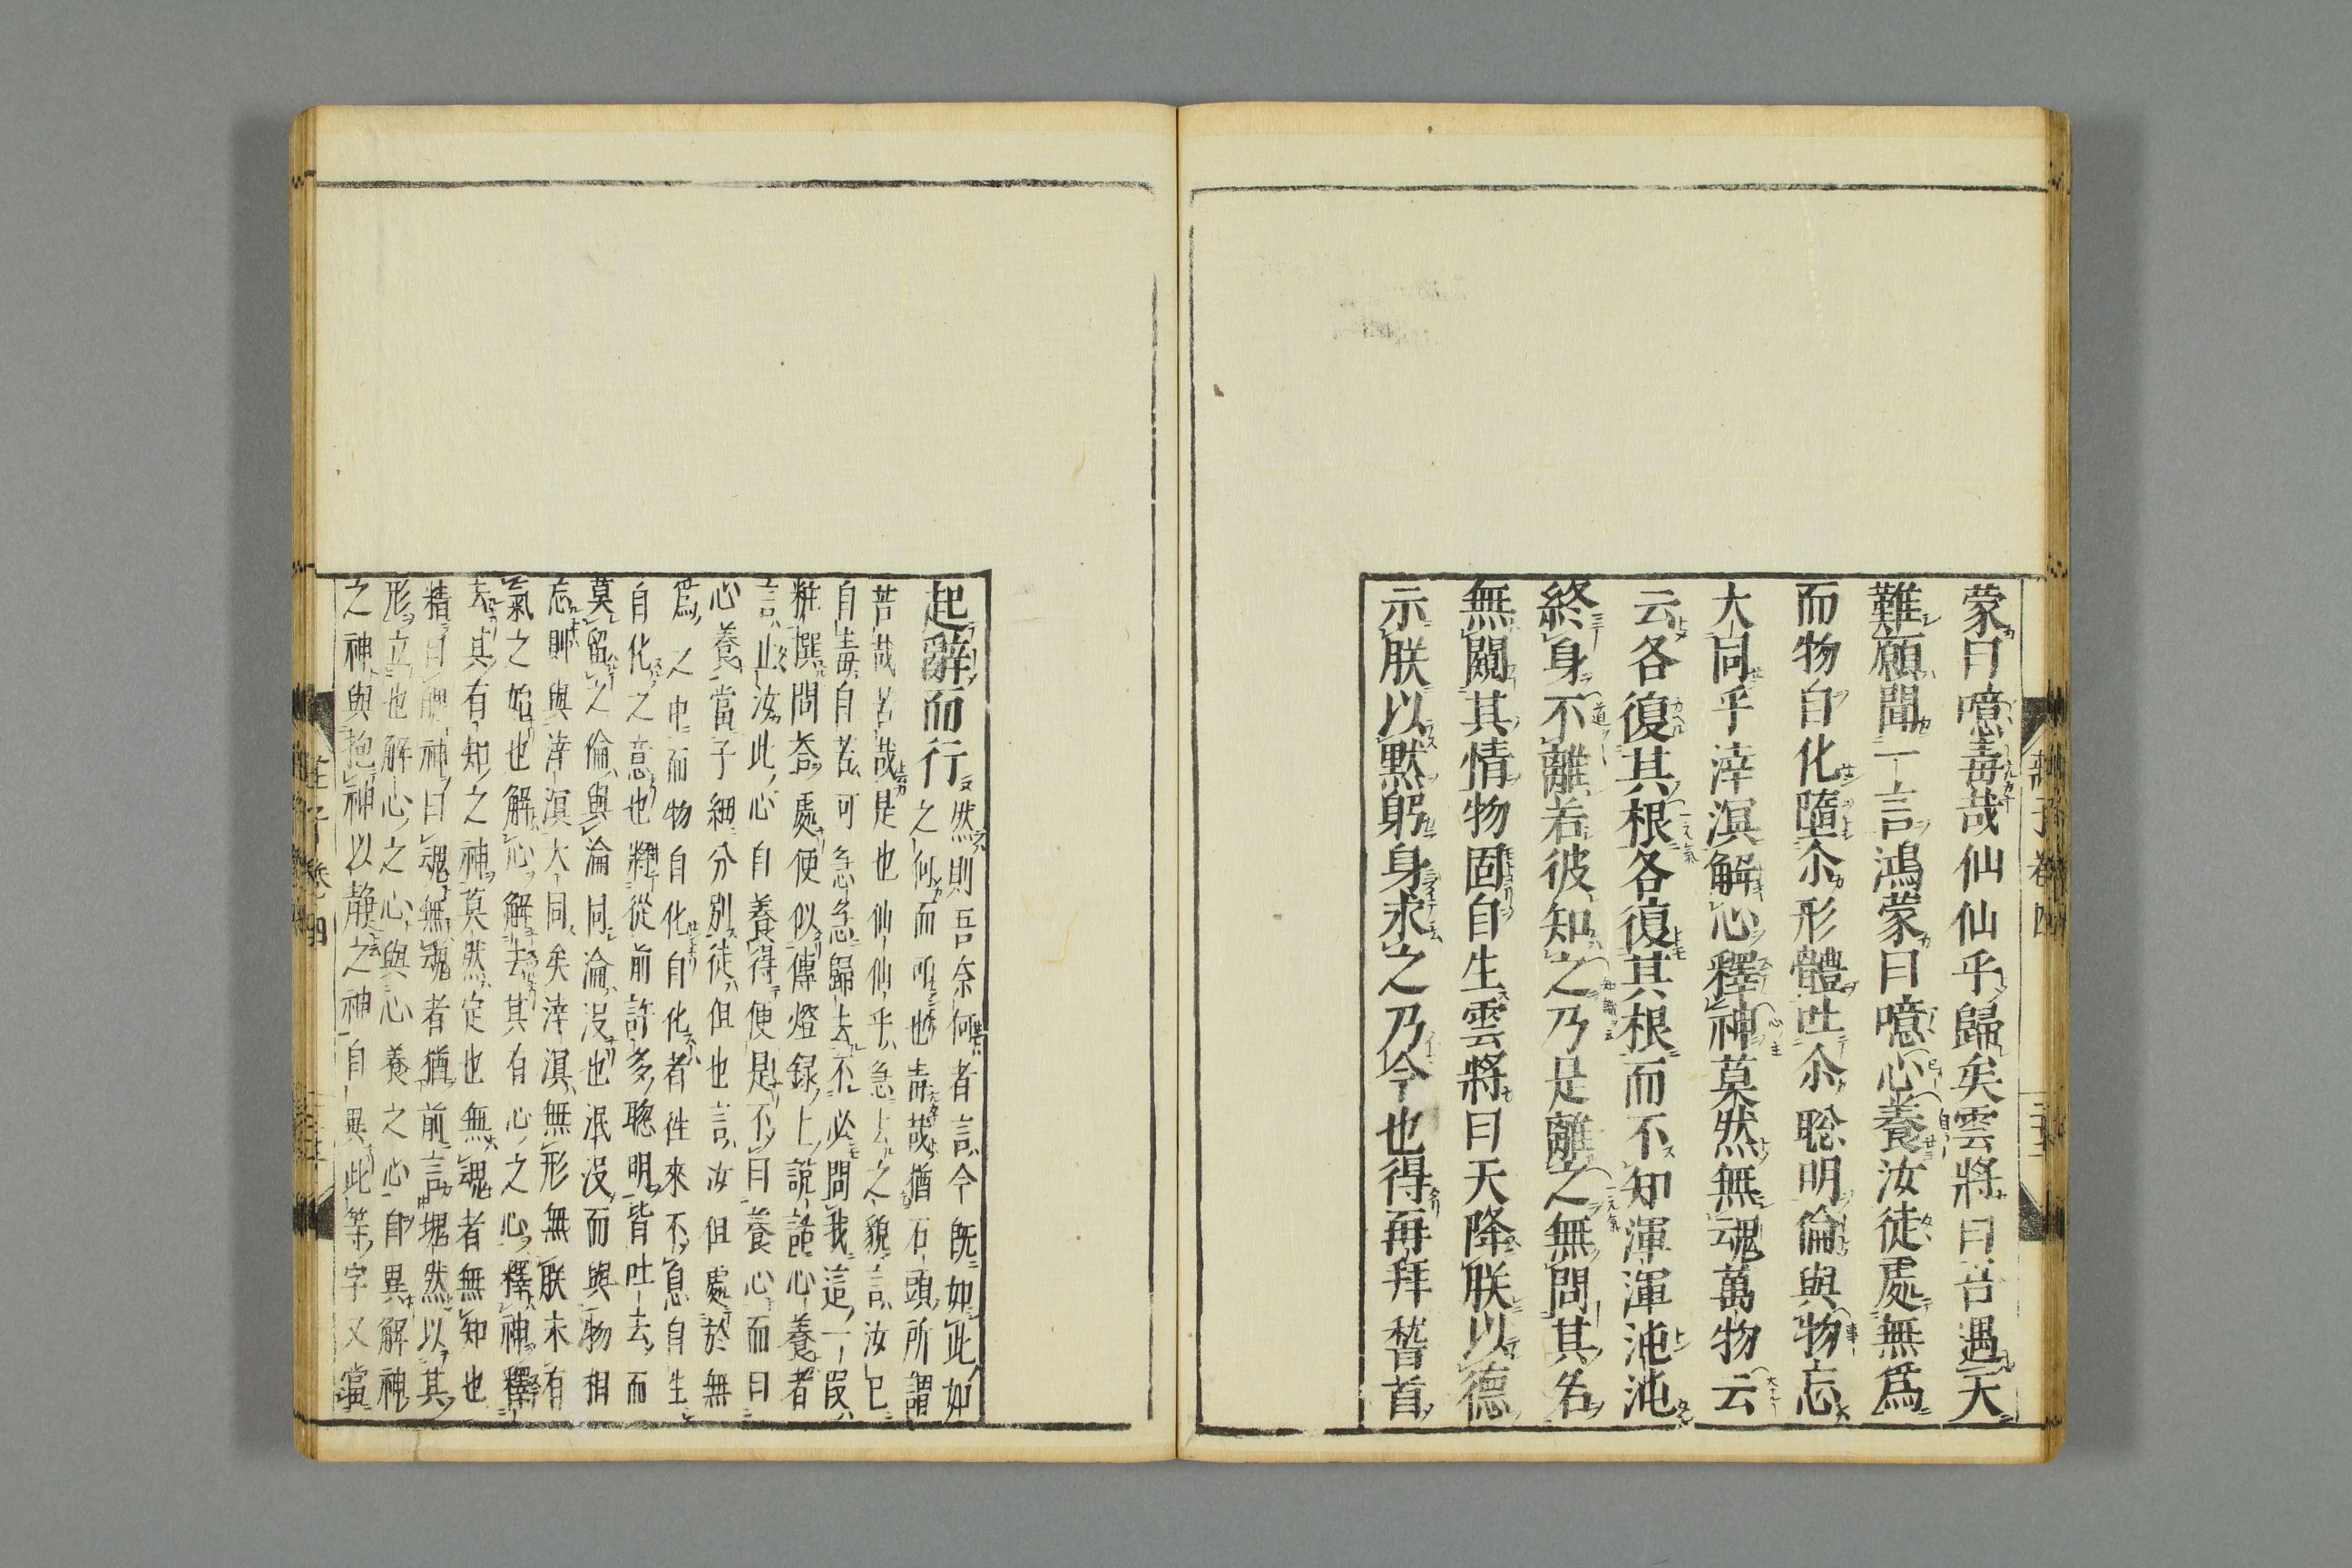 蒙曰噫毒哉仙仙乎歸矣雲將曰吾遇天
難願聞一言鴻蒙曰噫心養汝徒處無爲
而物自化墮尒形體吐尒聡明倫與物忘
大同乎涬溟解心釋神莫然無魂萬物云
云各復其根各復其根而不知渾渾沌沌
終身不離若彼知之乃是離之無問其名
無闚其情物固自生雲將曰天降朕以德
示朕以默躬身求之乃今也得再拜䭫首
起辭而行
然則吾奈何者言今既如此如
之何而可也毒哉猶石頭所謂
苦哉苦哉是也仙仙乎急去之貌言汝已
自毒自苦可急急歸去不必問我這一段
粧撰問荅處便似傳燈録上說話心養者
言止汝此心自養得便是不曰養心而曰
心養當子細分別徒但也言汝但處於無
爲之中而物自化自化者徃來不息自生
自化之意也將從前許多聰明皆吐去而
莫留之倫與淪同淪没也泯没而與物相
忘則與涬溟大同矣涬溟無形無朕未有
氣之始也解心解去其有心之心釋神釋
去其有知之神莫然定也無魂者無知也
精曰神曰魂無魂者猶前言塊然以其
形立也解心之心與心養之心自異解神
之神與抱神以靜之神自異此等字又當
莊子卷四